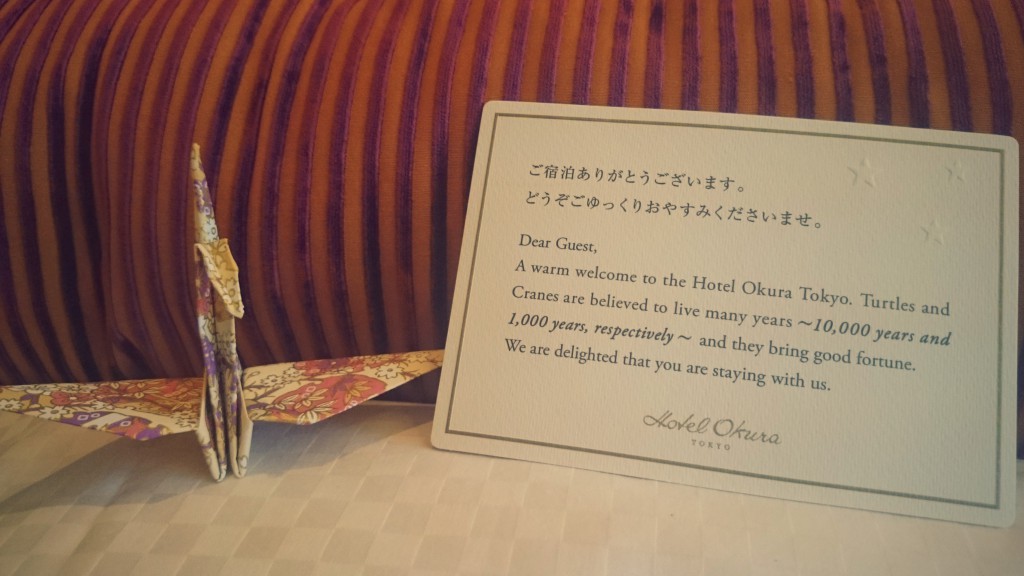 ご宿泊ありがとうございます。
どうぞごゆっくりおやすみくださいませ。
Dear Guest,
A warm welcome to the Hotel Okura Tokyo. Turtles and
Cranes are believed to live many years ～10,000 years and
1,000 years, respectively～ and they bring good fortune.
We are delighted that you are staying with us.
Hotel Okura
TOKYO